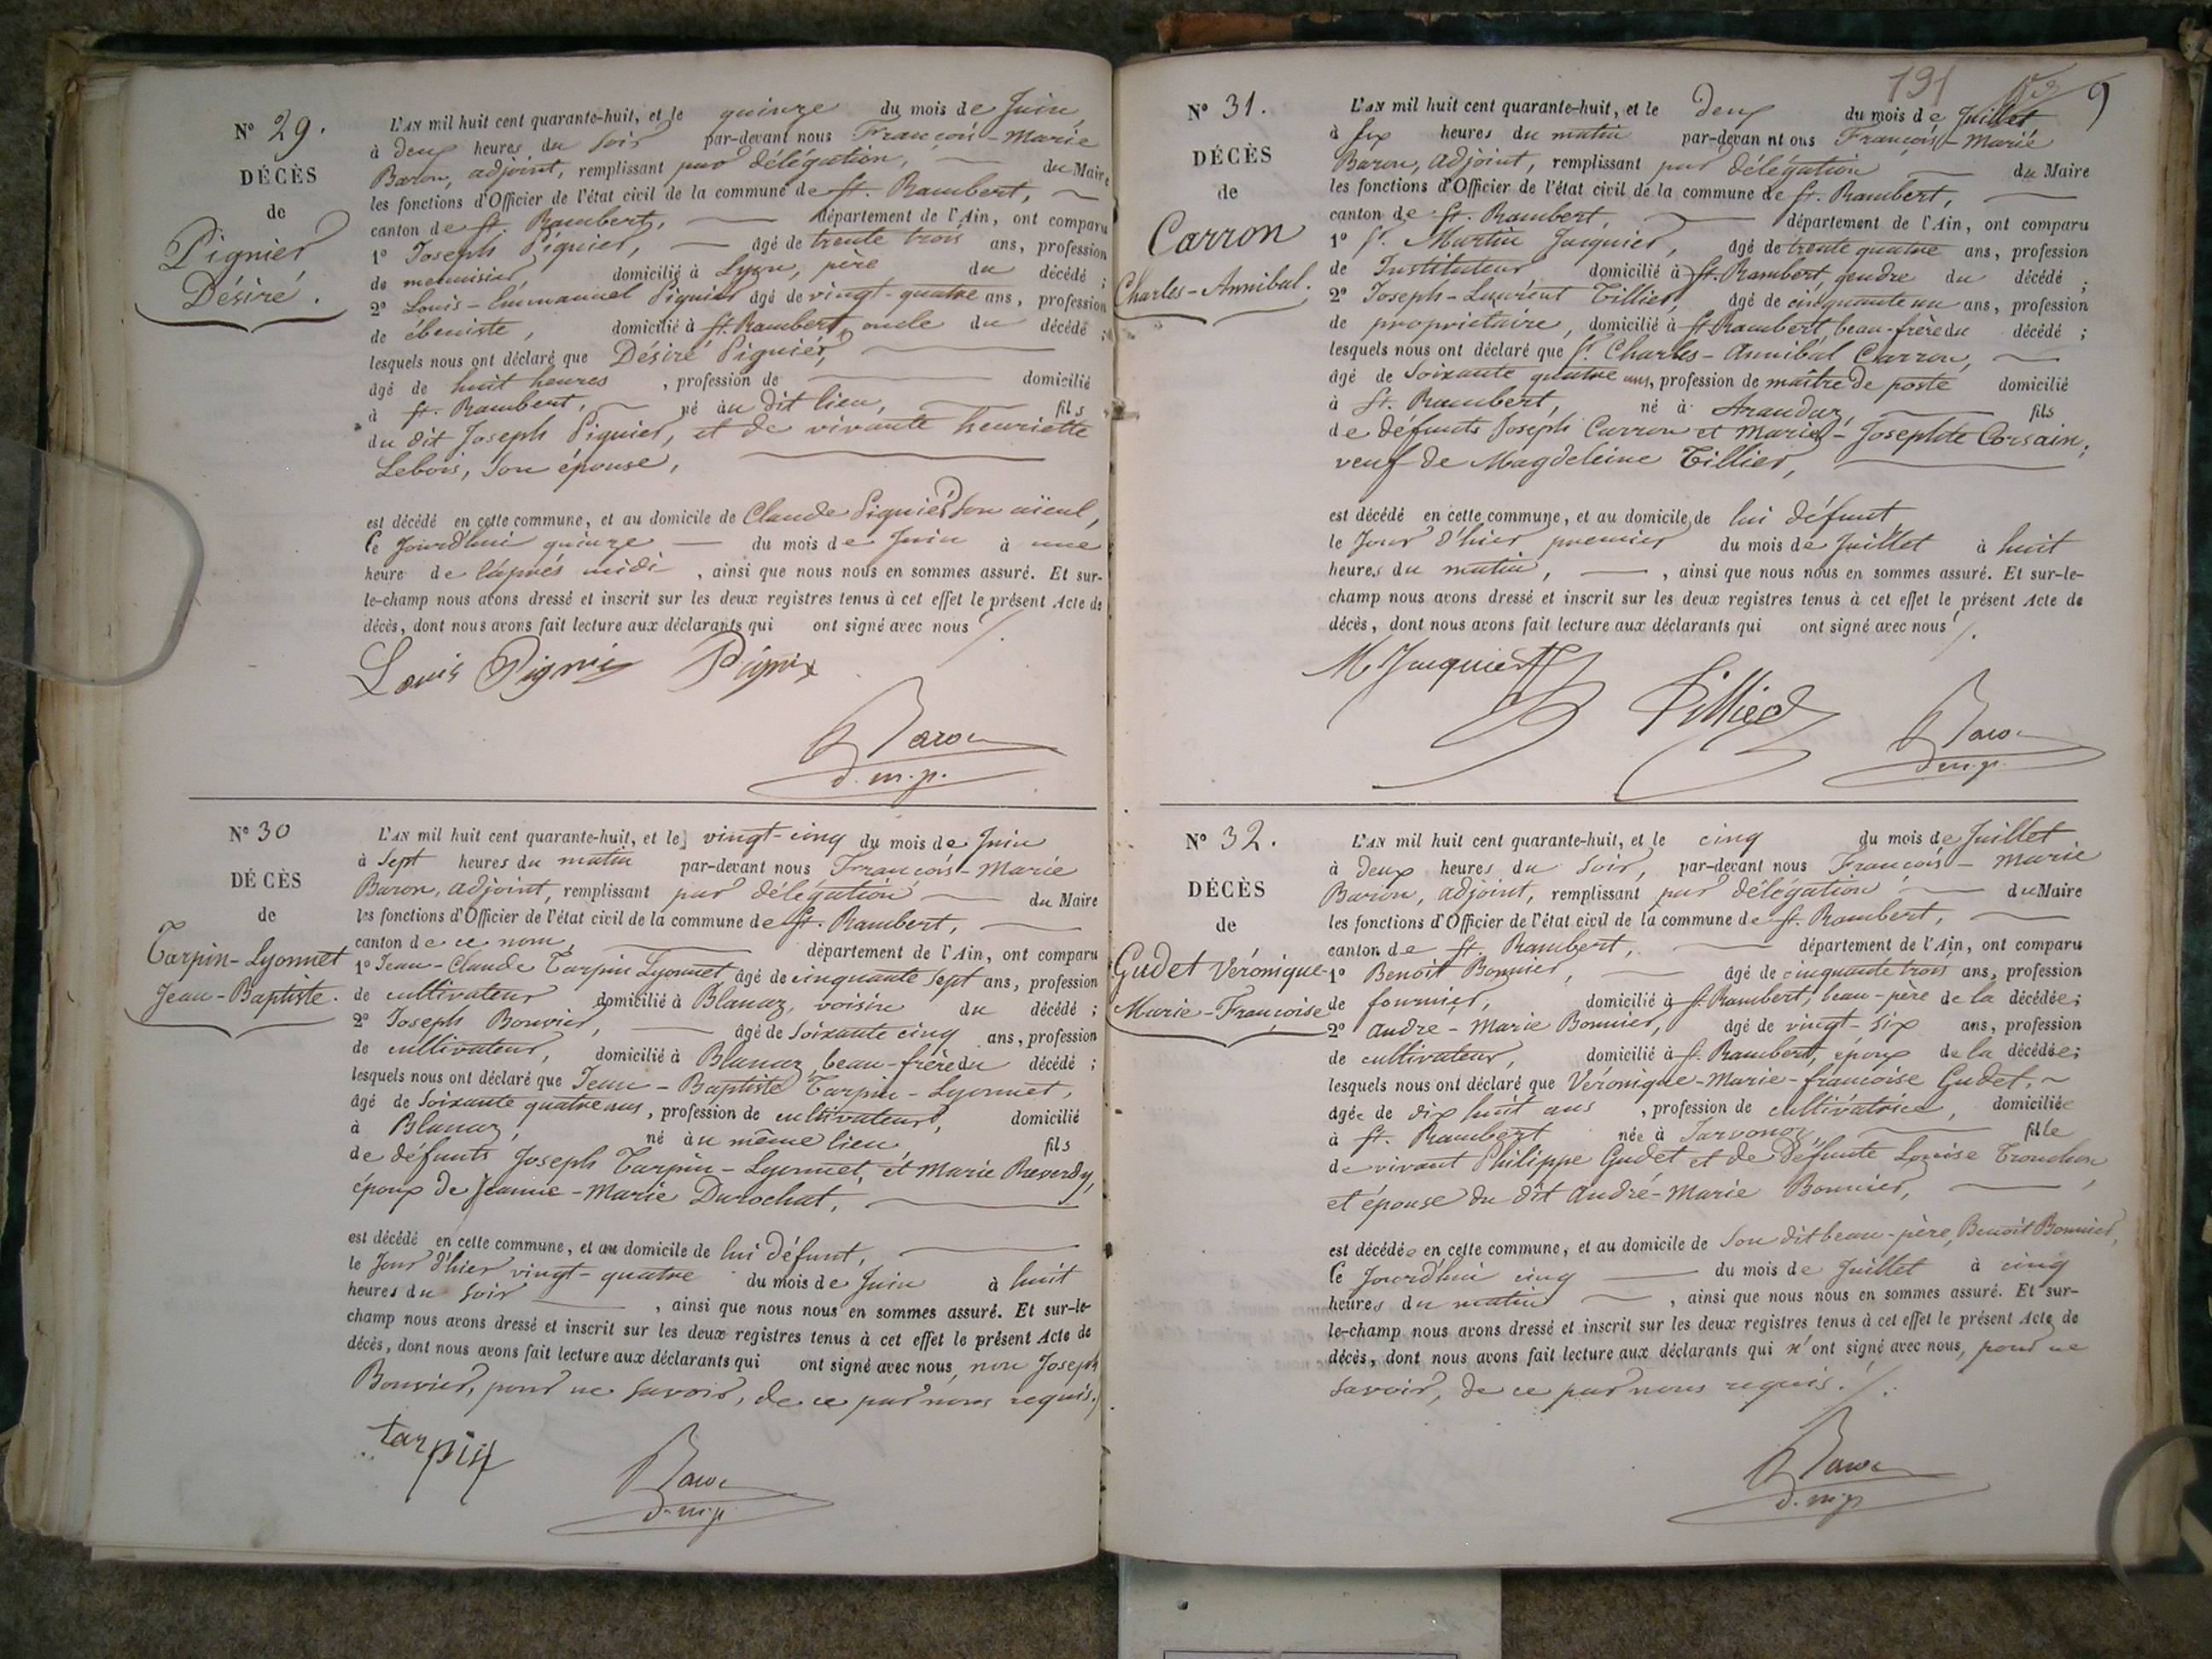 N° 29.
DÉCÈS
de
Pignier
Désiré.
L'AN mil huit cent quarante-huit, et le quinze du mois de Juin
à deux heures du soir par-devant nous François-Marie
Baron, adjoint, remplissant par délégation, du Maire
les fonctions d'Officier de l'état civil de la commune de St. Rambert,
canton de St. Rambert, département de l'Ain, ont comparu
1° Joseph Pignier, âgé de trente trois ans, profession
de menuisier, domicilié à Lyon, père du décédé ;
2° Louis-Emmanuel Pignier âgé de vingt-quatre ans, profession
de ébeniste, domicilié à St. Rambert, oncle du décédé ;
lesquels nous ont déclaré que Désiré Pignier,
âgé de huit heures, profession de domicilié
à St. Rambert, né au dit lieu, fils
du dit Joseph Pignier, et de vivante henriette
Lebois, son épouse,
est décédé en cette commune, et au domicile de Claude Pignier son aïeul,
ce Jourd'hui quinze du mois de Juin à une
heure de l'après midi, ainsi que nous nous en sommes assuré. Et sur-
le-champ nous avons dressé et inscrit sur les deux registres tenus à cet effet le présent Acte de
décès, dont nous avons fait lecture aux déclarants qui ont signé avec nous
Louis Pignier Pignier
Baron
d. m. p.
N° 30
DÉCÈS
de
Tarpin-Lyonnet
Jean-Baptiste.
L'AN mil huit cent quarante-huit, et le vingt-cinq du mois de Juin
à Sept heures du matin par-devant nous François-Marie
Baron, adjoint, remplissant par délégation du Maire
les fonctions d'Officier de l'état civil de la commune de St. Rambert,
canton de ce nom, département de l'Ain, ont comparu
1° Jean-Claude Tarpin Lyonnet âgé de cinquante sept ans, profession
de cultivateur domicilié à Blanaz, voisin du décédé ;
2° Joseph Bouvier, âgé de soixante cinq ans, profession
de cultivateur, domicilié à Blanaz, beau-frère du décédé ;
lesquels nous ont déclaré que Jean-Baptiste Tarpin-Lyonnet,
âgé de soixante quatre ans, profession de cultivateur, domicilié
à Blanaz, né au même lieu fils
de défunts Joseph Tarpin-Lyonnet, et Marie Reverdy,
époux de Jeanne-Marie Durochat,
est décédé en cette commune, et au domicile de lui défunt,
le Jour d'hier vingt-quatre du mois de Juin à huit
heures du soir, ainsi que nous nous en sommes assuré. Et sur-le-
champ nous avons dressé et inscrit sur les deux registres tenus à cet effet le présent Acte de
décès, dont nous avons fait lecture aux déclarants qui ont signé avec nous, non Joseph
Bouvier, pour ne savoir, de ce par nous requis.
tarpin
Baron
d. m. p.
191
9
N° 31.
DÉCÈS
de
Carron
Charles-Annibal.
L'AN mil huit cent quarante-huit, et le deux du mois de Juillet
à six heures du matin par-devan nt ous François-Marie
Baron, adjoint, remplissant par délégation du Maire
les fonctions d'Officier de l'état civil de la commune de St. Rambert,
canton de St. Rambert, département de l'Ain, ont comparu
1° Sr. Martin Juiquier, âgé de trente quatre ans, profession
de Instituteur domicilié à St. Rambert, gendre du décédé ;
2° Joseph-Laurent Tillier, âgé de cinquante un ans, profession
de propriétaire, domicilié à St. Rambert beau-frère du décédé ;
lesquels nous ont déclaré que Sr. Charles-Annibal Carron,
âgé de soixante quatre ans, profession de maître de poste domicilié
à St. Rambert, né à Arandaz, fils
de défunts Joseph Carron et Marie-Josephte Corsain,
veuf de Magdeleine Tillier,
est décédé en cette commune, et au domicile de lui défunt
le Jour d'hier premier du mois de Juillet à huit
heures du matin, ainsi que nous nous en sommes assuré. Et sur-le-
champ nous avons dressé et inscrit sur les deux registres tenus à cet effet le présent Acte de
décès, dont nous avons fait lecture aux déclarants qui ont signé avec nous
Tillier
Baron
d. m. p.
N° 32.
DÉCÈS
de
Gudet Véronique-
Marie-Françoise
L'AN mil huit cent quarante-huit, et le cinq du mois de Juillet
à deux heures du soir, par-devant nous François-Marie
Baron, adjoint, remplissant par délégation du Maire
les fonctions d'Officier de l'état civil de la commune de St. Rambert,
canton de St. Rambert, département de l'Ain, ont comparu
1° Benoit Bonnier, âgé de cinquante trois ans, profession
de fournier, domicilié à St. Rambert, beau-père de la décédée ;
2° André-Marie Bonnier, âgé de vingt-six ans, profession
de cultivateur, domicilié à St. Rambert, époux de la décédée ;
lesquels nous ont déclaré que Véronique-Marie-françoise Gudet,
âgée de dix huit ans, profession de cultivatrice, domiciliée
à St. Rambert née à Tarvonoz, fille
de vivant Philippe Gudet et de défunte Louise Trouchon
et épouse du dit André-Marie Bonnier,
est décédée en cette commune, et au domicile de son dit beau-père, Benoit Bonnier,
ce Jourd'hui cinq du mois de Juillet à cinq
heures du matin, ainsi que nous nous en sommes assuré. Et sur-
le-champ nous avons dressé et inscrit sur les deux registres tenus à cet effet le présent Acte de
décès, dont nous avons fait lecture aux déclarants qui n'ont signé avec nous, pour ne
savoir, de ce par nous requis.
Baron
d. m. p.